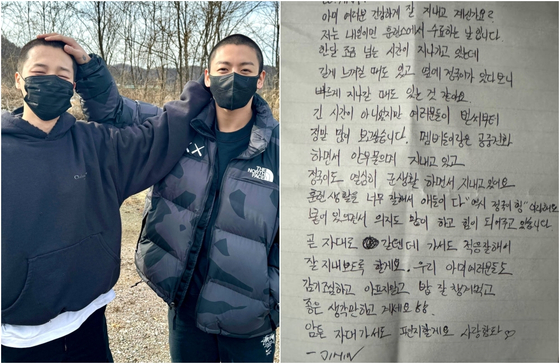 XX
THE
NORTH
FACE
아미 여러분 건강하게 잘 지내고 계신가요?
저는 내일이면 훈련소에서 수료하는 날입니다
한달 조금 넘는 시간이 지나가고 있는데
길게 느껴질 때도 있고 옆에 정국이가 있다보니
빠르게 지나갈 때도 있는 것 같아요
긴 시간이 아니였지만 여러분들이 벌써부터
정말 많이 보고싶습니다. 멤버들이랑은 전화
하면서 안부물으며 지내고 있고
정국이도 열심히 군생활 하면서 지내고 있어요
훈련생활을 너무 잘해서 애들이 다 "역시 정국이 형"
붙어있으면서 의지도 많이 하고 힘이 되어주고 있습니다
곧 자대로 갈텐데 가서도 적응잘해서
잘 지내보도록 할게요. 우리 아미여러분들도
감기조심하고 아프지말고 밥 잘 챙겨먹고
좋은 생각만하고 계세요 ㅎㅎ
암튼 자대가서도 편지할게요 사랑합니다 ♡
- JIMIN